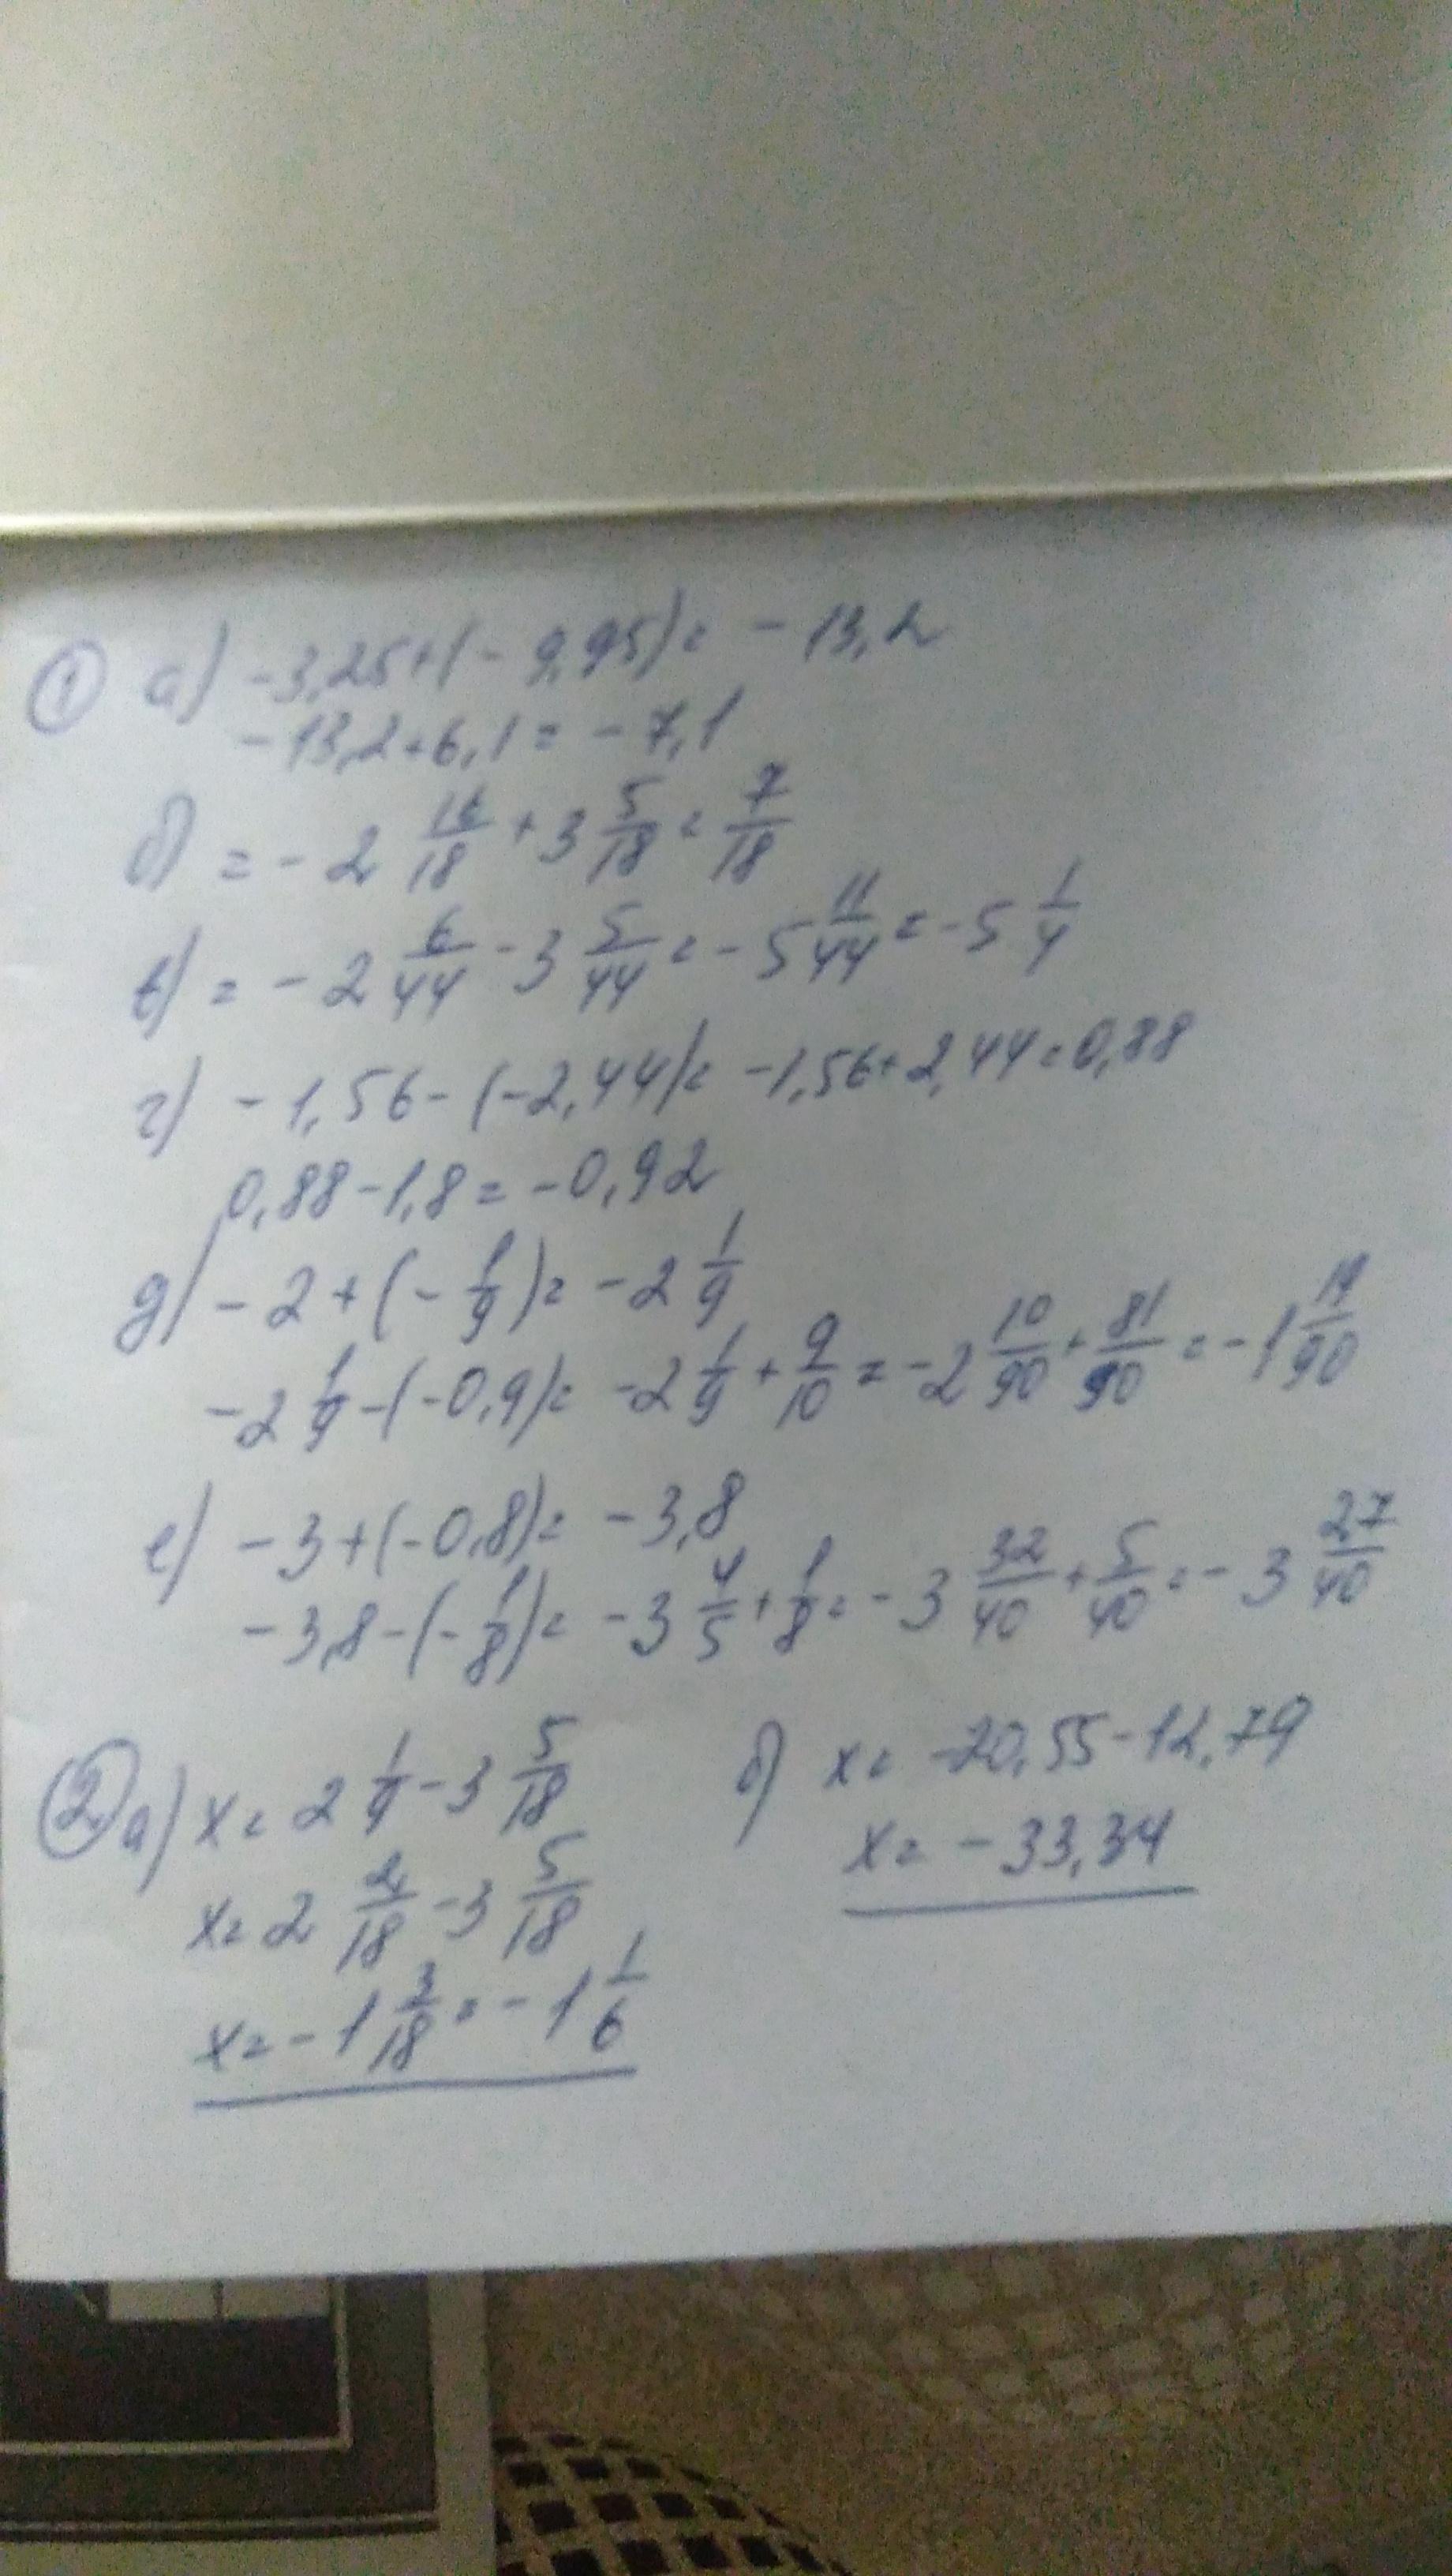 ① а) -3,25+(-9,95)= -13,2
-13,2+6,1= -7,1
б) = -2 16/18 + 3 5/18 = 7/18
в) = -2 6/44 - 3 5/44 = -5 11/44 = -5 1/4
г) -1,56-(-2,44)= -1,56+2,44=0,88
0,88-1,8= -0,92
д) -2+(-1/9)= -2 1/9
-2 1/9-(-0,9)= -2 1/9 + 9/10 = -2 10/90 + 81/90 = -1 19/90
е) -3+(-0,8)= -3,8
-3,8-(-1/8)= -3 4/5 + 1/8 = -3 32/40 + 5/40 = -3 27/40
② а) x= 2 1/9 - 3 5/18
x= 2 2/18 - 3 5/18
x= -1 3/18 = -1 1/6
б) x= -20,55-12,79
x= -33,34